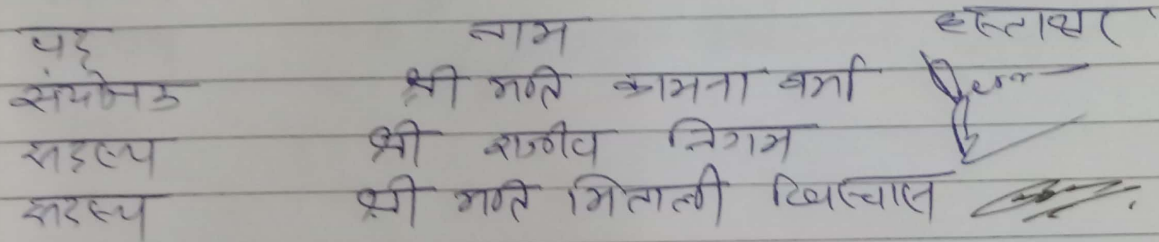 पद नाम हस्ताक्षर
संयोजक श्री मति कामना वर्मा
सदस्य श्री राजीव निगम
सदस्य श्री मति मिताली विश्वास